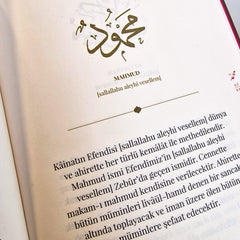 محمود
MAHMUD
[sallallahu aleyhi vesellem]
Kâinatın Efendisi [sallallahu aleyhi vesellem] dünya
ve ahirette her türlü kemâlât ile methedilendir.
Mahmud ismi Efendimiz'in [sallallahu aleyhi
vesellem] Zebûr'da geçen ismidir. Cennette
makam-ı mahmud kendisine verilecektir. Ahirette
bütün müminleri livâül-hamd denen bir sancak
altında toplayacak ve iman üzere ölen bütün
müminlere şefaat edecektir.